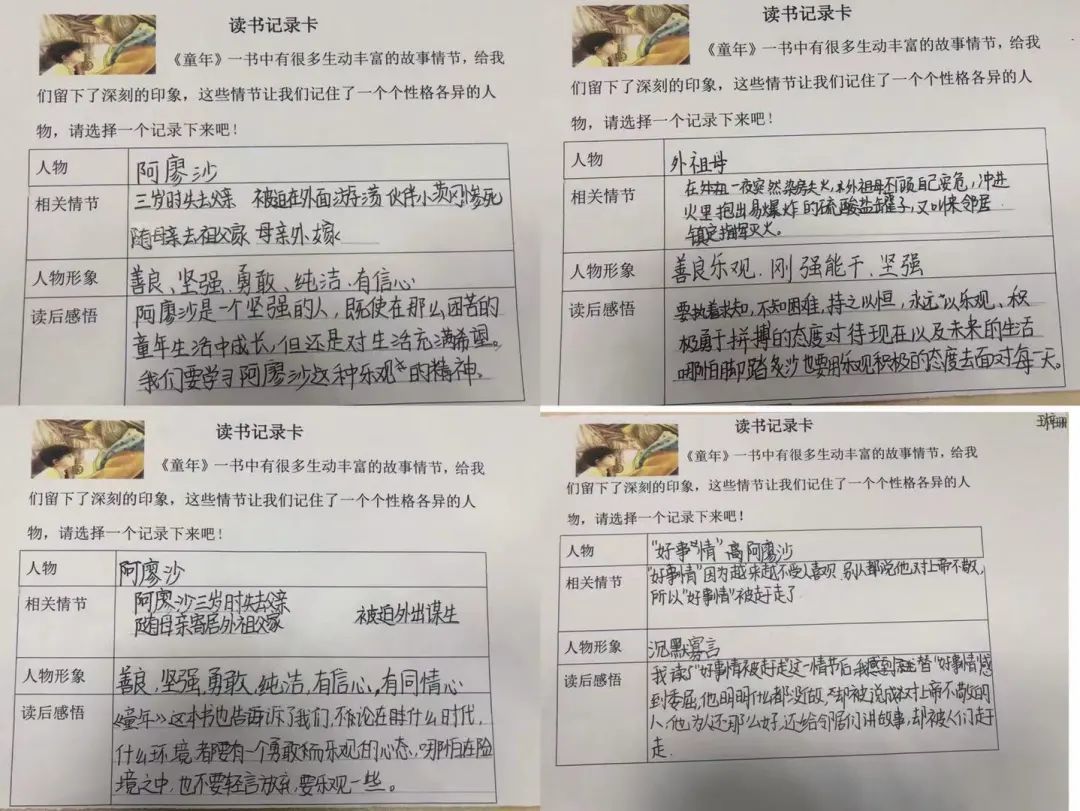 读书记录卡
《童年》一书中有很多生动丰富的故事情节，给我
们留下了深刻的印象，这些情节让我们记住了一个个性格各异的人
物，请选择一个记录下来吧！
人物 阿廖沙
相关情节 三岁时失去父亲 被迫在外面流浪 伙伴小茨冈惨死
随母亲去祖父家 母亲外嫁
人物形象 善良、坚强、勇敢、纯洁、有信心
读后感悟 阿廖沙是一个坚强的人，既使在那么困苦的
童年生活中成长，但还是对生活充满希望。
我们要学习阿廖沙这种乐观的精神。
读书记录卡
《童年》一书中有很多生动丰富的故事情节，给我
们留下了深刻的印象，这些情节让我们记住了一个个性格各异的人
物，请选择一个记录下来吧！
人物 外祖母
相关情节 在一夜突然染房失火，外祖母不顾自己安危，冲进
火里抱出易爆炸的硫酸盐罐子，又叫来邻居
镇定指挥灭火。
人物形象 善良乐观、刚强能干、坚强
读后感悟 要执着求知，不知困难，持之以恒，永远以乐观、积
极勇于拼搏的态度对待现在以及未来的生活
哪怕脚踏多沙也要用乐观积极的态度去面对每一天。
读书记录卡
《童年》一书中有很多生动丰富的故事情节，给我
们留下了深刻的印象，这些情节让我们记住了一个个性格各异的人
物，请选择一个记录下来吧！
人物 阿廖沙
相关情节 阿廖沙三岁时失去父亲
随母亲寄居外祖父家 被迫外出谋生
人物形象 善良，坚强，勇敢，纯洁，有信心，有同情心
读后感悟 《童年》这本书也告诉了我们，不论在什么时代，
什么环境都要有一个勇敢而乐观的心态，哪怕在险
境之中，也不要轻言放弃，要乐观一些。
读书记录卡
《童年》一书中有很多生动丰富的故事情节，给我
们留下了深刻的印象，这些情节让我们记住了一个个性格各异的人
物，请选择一个记录下来吧！
人物 "好事情" 阿廖沙
相关情节 "好事情"因为越来越不受人喜欢，别人都说他对上帝不敬，
所以"好事情"被赶走了
人物形象 沉默寡言
读后感悟 我读了"好事情被赶走这一情节后，我感到替"好事情"感
到委屈，他明明什么都没做，却被说成对上帝不敬的
人，他为人还那么好，还给邻居们讲故事，却被人们赶
走.